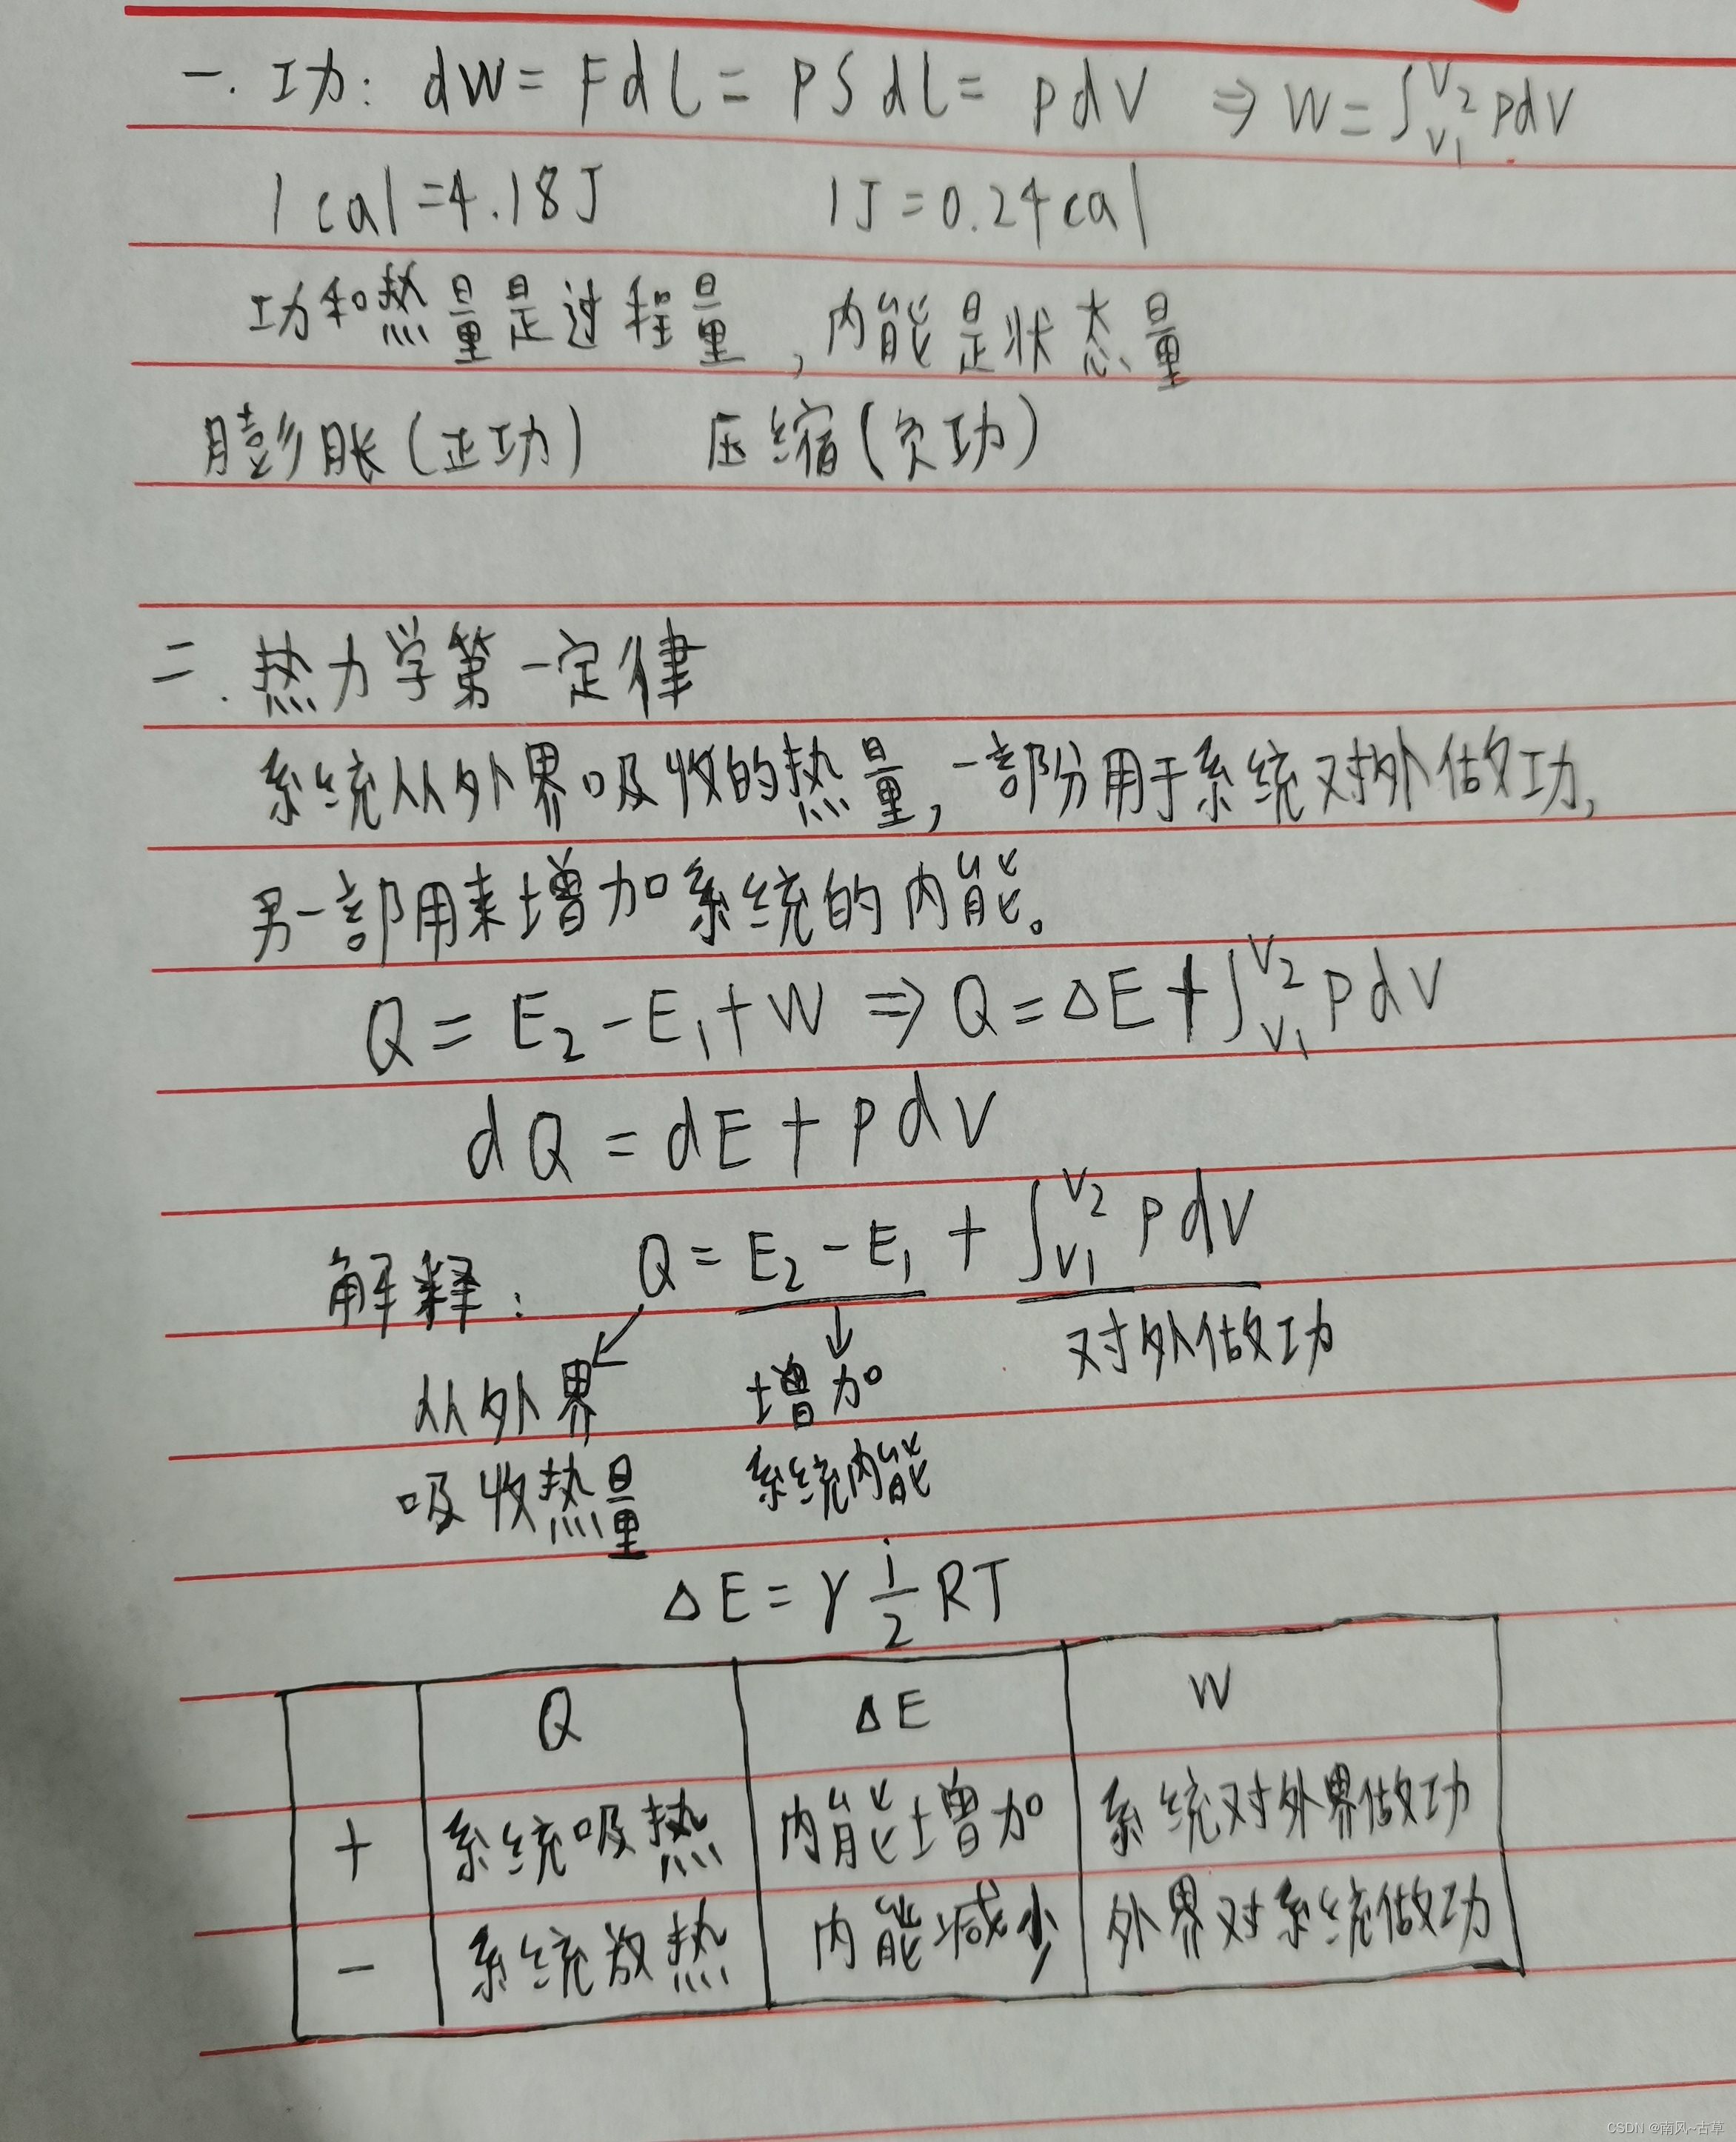 一. 功: dW = Fdl = PSdl = pdV ⇒ W = ∫_{V1}^{V2} pdV
1 cal = 4.18J 1J = 0.24cal
功和热量是过程量, 内能是状态量
膨胀(正功) 压缩(负功)
二. 热力学第一定律
系统从外界吸收的热量, 一部份用于系统对外做功,
另一部用来增加系统的内能。
Q = E₂ - E₁ + W ⇒ Q = ΔE + ∫_{V1}^{V2} pdV
dQ = dE + pdV
解释: Q = E₂ - E₁ + ∫_{V1}^{V2} pdV
从外界 增加 对外做功
吸收热量 系统内能
ΔE = γ i/2 RT
Q ΔE W
+ 系统吸热 内能增加 系统对外界做功
- 系统放热 内能减少 外界对系统做功
CSDN @南风~古草